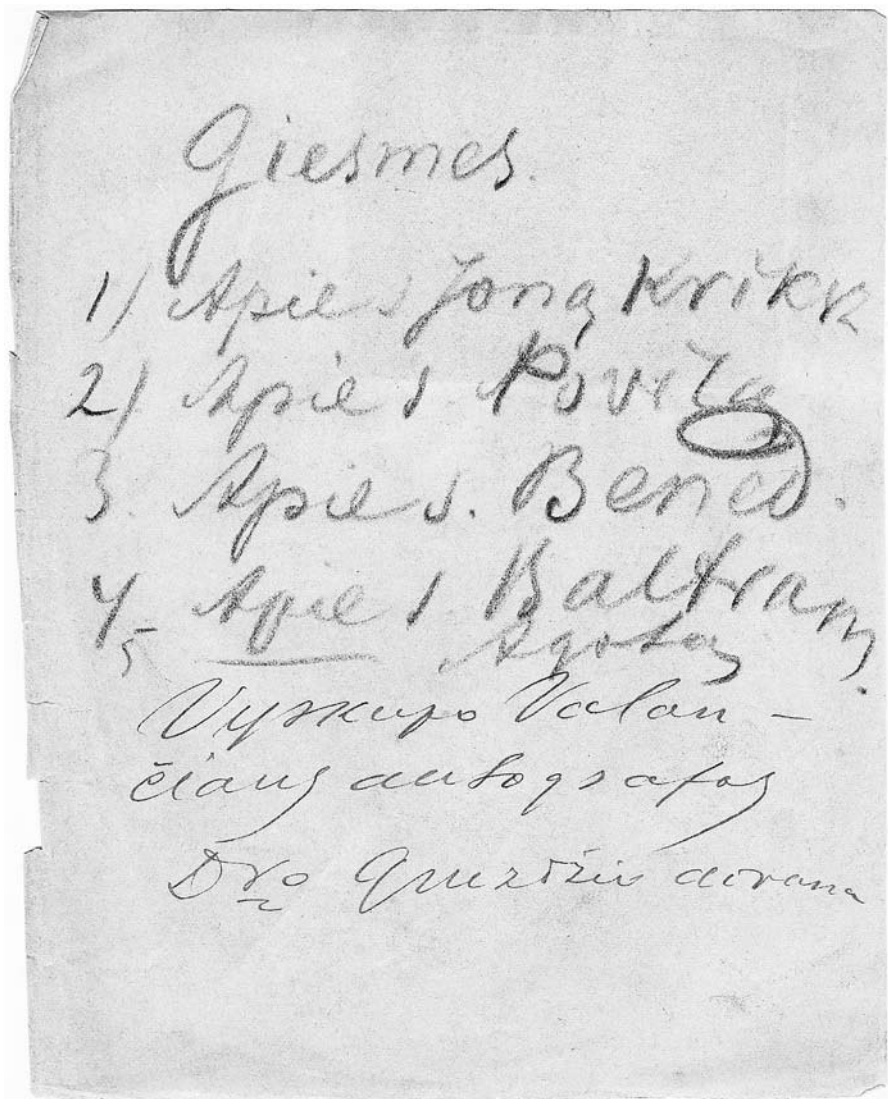 Giesmes.
1) Apie s Joną Krikš
2) Apie s Povilą
3. Apie s. Bened.
4. Apie s Baltram.
5 Agotą
Vyskupo Valan-
čiaus autografas
Dro dovana